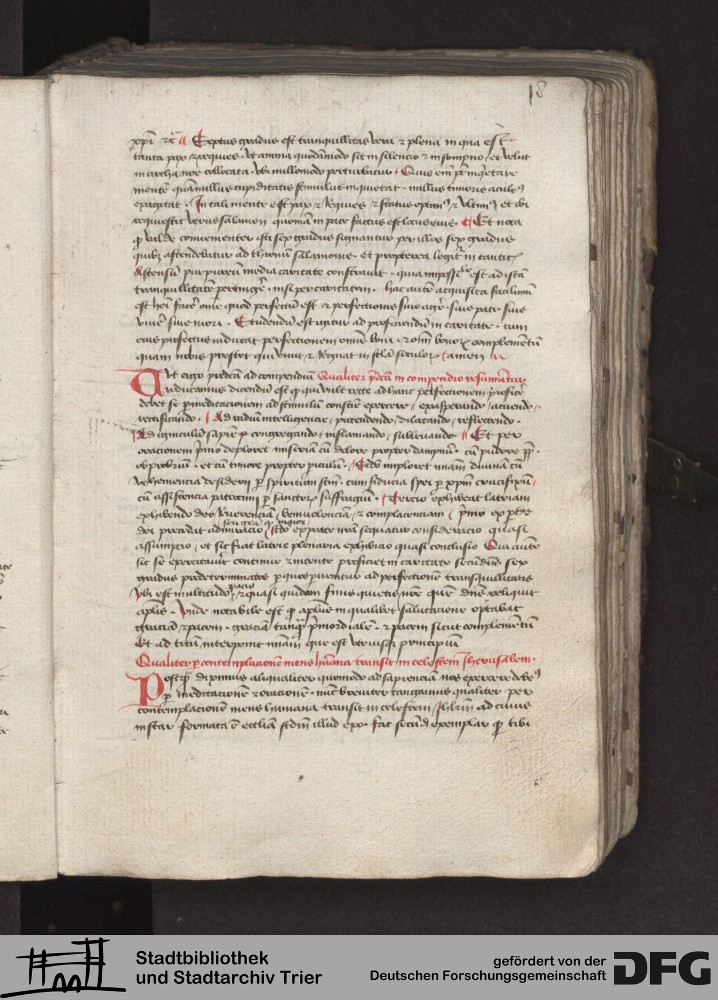 18
xpi etc Septus gradus est tranquillitas vera et plena in qua est
tanta pax et requies ut anima quodammodo sit in silencio et in sompno et velut
in archa noe collocata ubi nullomodo perturbatur Quis enim potest inquietare
mentem quam nullius cupiditatis stimulus inquietat nullius timoris aculeus
exagitat In tali mente est pax et requies et status optimus et ultimus et ibi
requiescit verus salamon quoniam in pace factus est locus eius Et nota
quod valde convenienter isti sex gradus signantur per illos sex gradus
quibus astendebatur ad thronum salamonis et propterea legitur in canticis
Astensum purpureum media caritate constravit quia impossibile est ad istam
tranquillitatem pertingere nisi per caritatem hac autem acquisita facilimum
est homini facere omne quod perfectum est et perfectionis sive agere sive pati sive
vivere sive mori Studendum est igitur ad proficiendum in caritate cum
eius profectus inducat perfectionem omnem boni et omnium bonorum complementum
quam nobis prestet qui vivit et regnat in secula seculorum amen
Ut ergo predicta ad compendium Qualiter predicta in compendio resumuntur
reducamus dicendum est quod qui vult recte ad hanc perfectionem proficere
debet se per meditacionem ad stimulum conscientie exercere exasperando acuendo
rectificando Ad radium intelligencie protendendo dilatando reflectendo
Ad igniculum sapiencie congregando inflamando sublevando Et per
oracionem primo deploret miseriam cum dolore propter dampnum cum pudore propter
obprobrium et cum timore propter periculum Secundo imploret misericordiam divinam cum
vehemencia desiderii per spiritum sanctum cum fiducia spei per xpm crucifixum
cum assistencia patrocinii per sanctorum suffragium Tercio exhibeat latriam
exhibendo deo reverenciam benivolenciam et complacenciam primo ex parte
dei precedat admiracio secundo ex parte nostra sequatur consideracio quasi
assumpcio et sic fiat latrie plenaria exhibicio quasi conclusio Qui autem
sic se exercitaverit continue et intente proficiet in caritate secundum sex
gradus predeterminatos per quos pervenitur ad perfectionem tranquillitatis
ubi est multitudo pacis et quasi quidam finis quietis nos quem dominus reliquit
apostolis Unde notabile est quod apostolus in qualibet salutacione optabat
graciam et pacem graciam tanquam primordialem et pacem sicut complementum
Et ad titum interponit misericordiam que est utriusque principium
Qualiter per contemplacionem mens humana transit in celestem Iherusalem
Postquam diximus aliqualiter quomodo ad sapienciam nos exercere debemus
per meditacionem et oracionem nunc breviter tangamus qualiter per
contemplacionem mens humana transit in celestem Iherusalem ad cuius
instar formata est ecclesia secundum illud exo fac secundum exemplar quod tibi
Stadtbibliothek
und Stadtarchiv Trier
gefördert von der
Deutschen Forschungsgemeinschaft
DFG